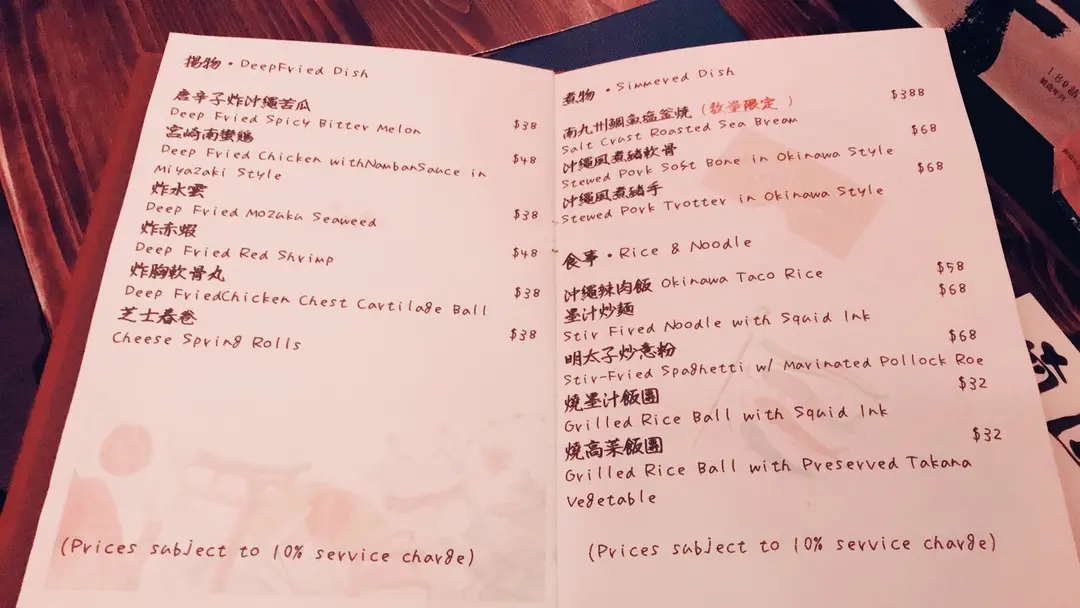 揚物・DeepFried Dish
唐辛子炸沖繩苦瓜
Deep Fried Spicy Bitter Melon $38
宮崎南蠻鶏
Deep Fried Chicken withNambanSauce in $48
Miyazaki Style
炸水雲
Deep Fried Mozuku Seaweed $38
炸赤蝦
Deep Fried Red Shrimp $48
炸胸軟骨丸
Deep FriedChicken Chest Cartilage Ball $38
芝士春卷
Cheese Spring Rolls $38
(Prices subject to 10% service charge)
煮物・Simmered Dish
南九州鯛魚塩釜燒（数量限定） $388
Salt Crust Roasted Sea Bream
沖繩風煮豬軟骨 $68
Stewed Pork Soft Bone in Okinawa Style
沖繩風煮豬手 $68
Stewed Pork Trotter in Okinawa Style
食事・Rice & Noodle
沖繩辣肉飯 Okinawa Taco Rice $58
墨汁炒麵 $68
Stir Fired Noodle with Squid Ink
明太子炒意粉 $68
Stir-Fried Spaghetti w/ Marinated Pollock Roe
燒墨汁飯團 $32
Grilled Rice Ball with Squid Ink
燒高菜飯團 $32
Grilled Rice Ball with Preserved Takana
Vegetable
(Prices subject to 10% service charge)